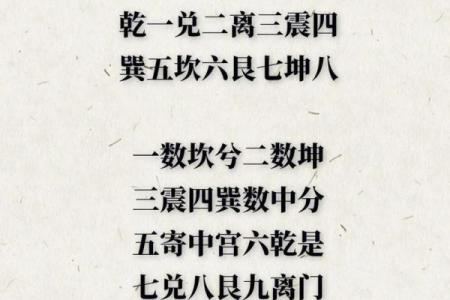 乾一兑二离三震四
巽五坎六艮七坤八
一数坎兮二数坤
三震四巽数中分
五寄中宫六乾是
七兑八艮九离门